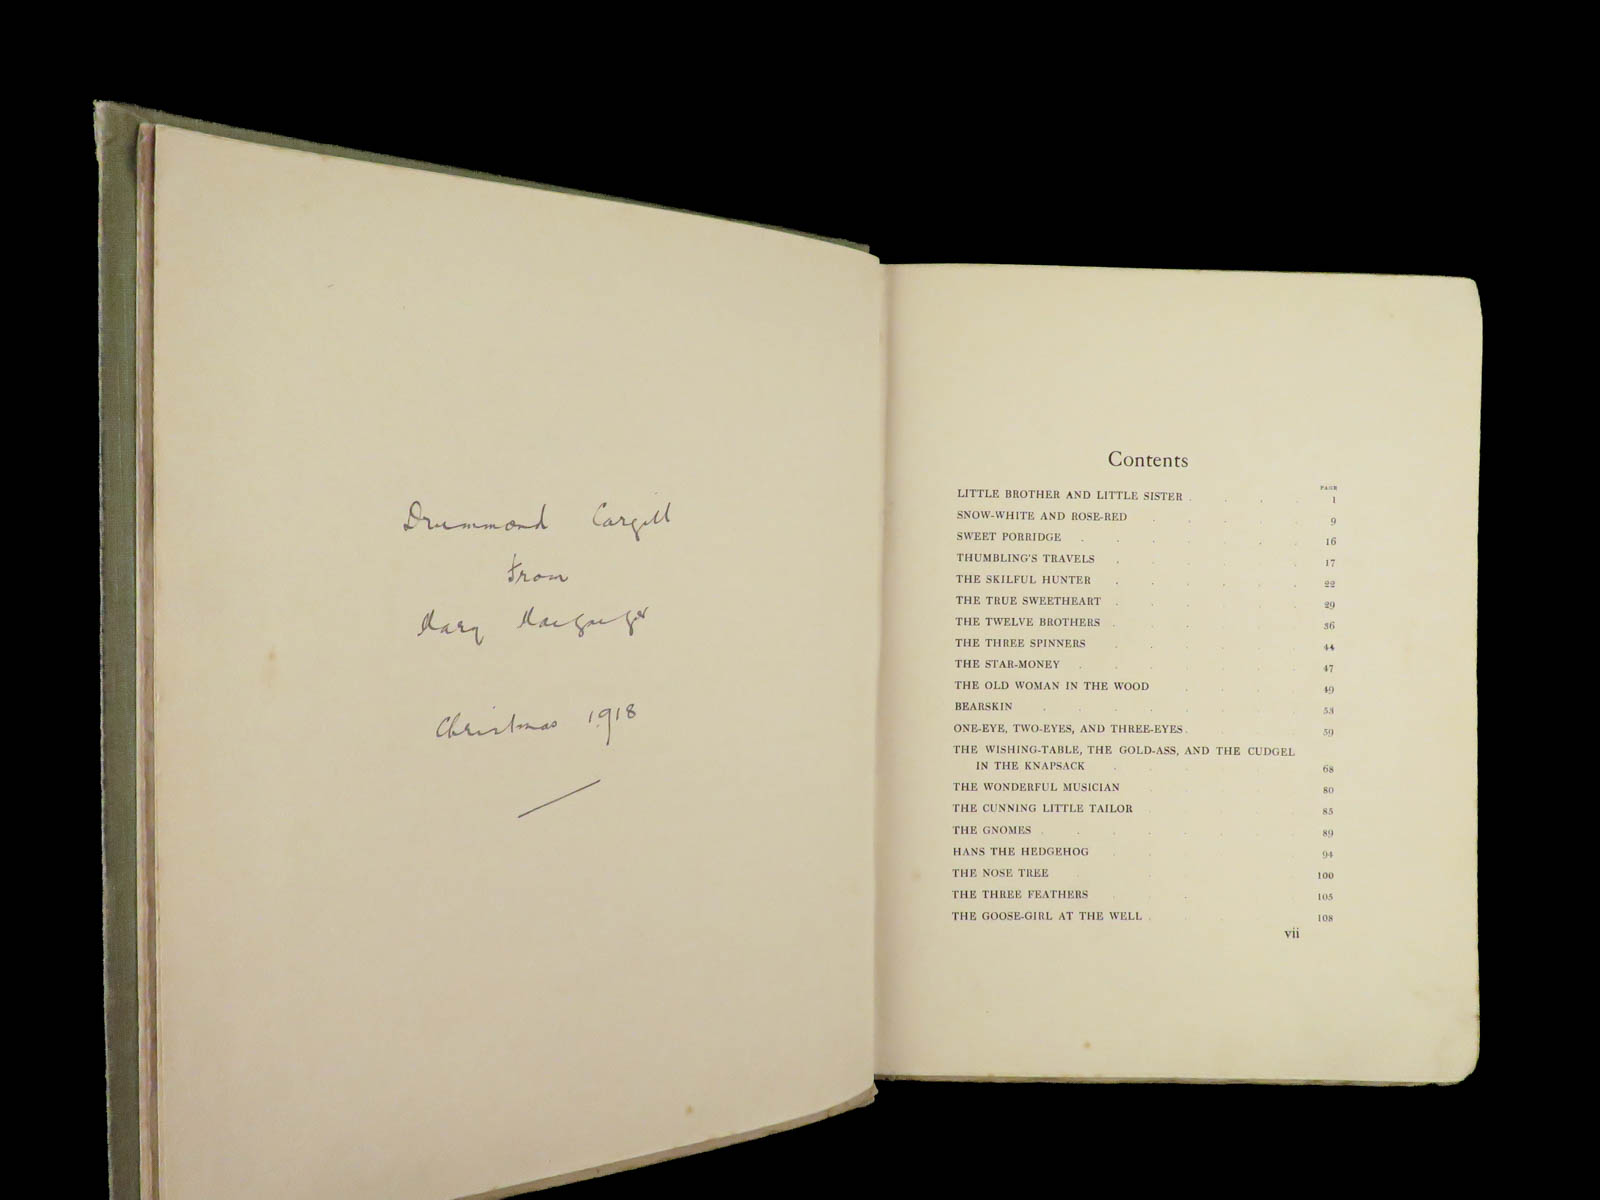 Drummond Cargill
from
Mary
Christmas 1918
Contents
PAGE
LITTLE BROTHER AND LITTLE SISTER . . . . 1
SNOW-WHITE AND ROSE-RED . . . . . 9
SWEET PORRIDGE . . . . . . . 16
THUMBLING'S TRAVELS . . . . . . 17
THE SKILFUL HUNTER . . . . . . 22
THE TRUE SWEETHEART . . . . . . 29
THE TWELVE BROTHERS . . . . . . 36
THE THREE SPINNERS . . . . . . 44
THE STAR-MONEY . . . . . . . 47
THE OLD WOMAN IN THE WOOD . . . . 49
BEARSKIN . . . . . . . . 53
ONE-EYE, TWO-EYES, AND THREE-EYES . . . . 59
THE WISHING-TABLE, THE GOLD-ASS, AND THE CUDGEL
IN THE KNAPSACK . . . . . . 68
THE WONDERFUL MUSICIAN . . . . . 80
THE CUNNING LITTLE TAILOR . . . . . 85
THE GNOMES . . . . . . . . 89
HANS THE HEDGEHOG . . . . . . 94
THE NOSE TREE . . . . . . . 100
THE THREE FEATHERS . . . . . . 105
THE GOOSE-GIRL AT THE WELL . . . . . 108
vii